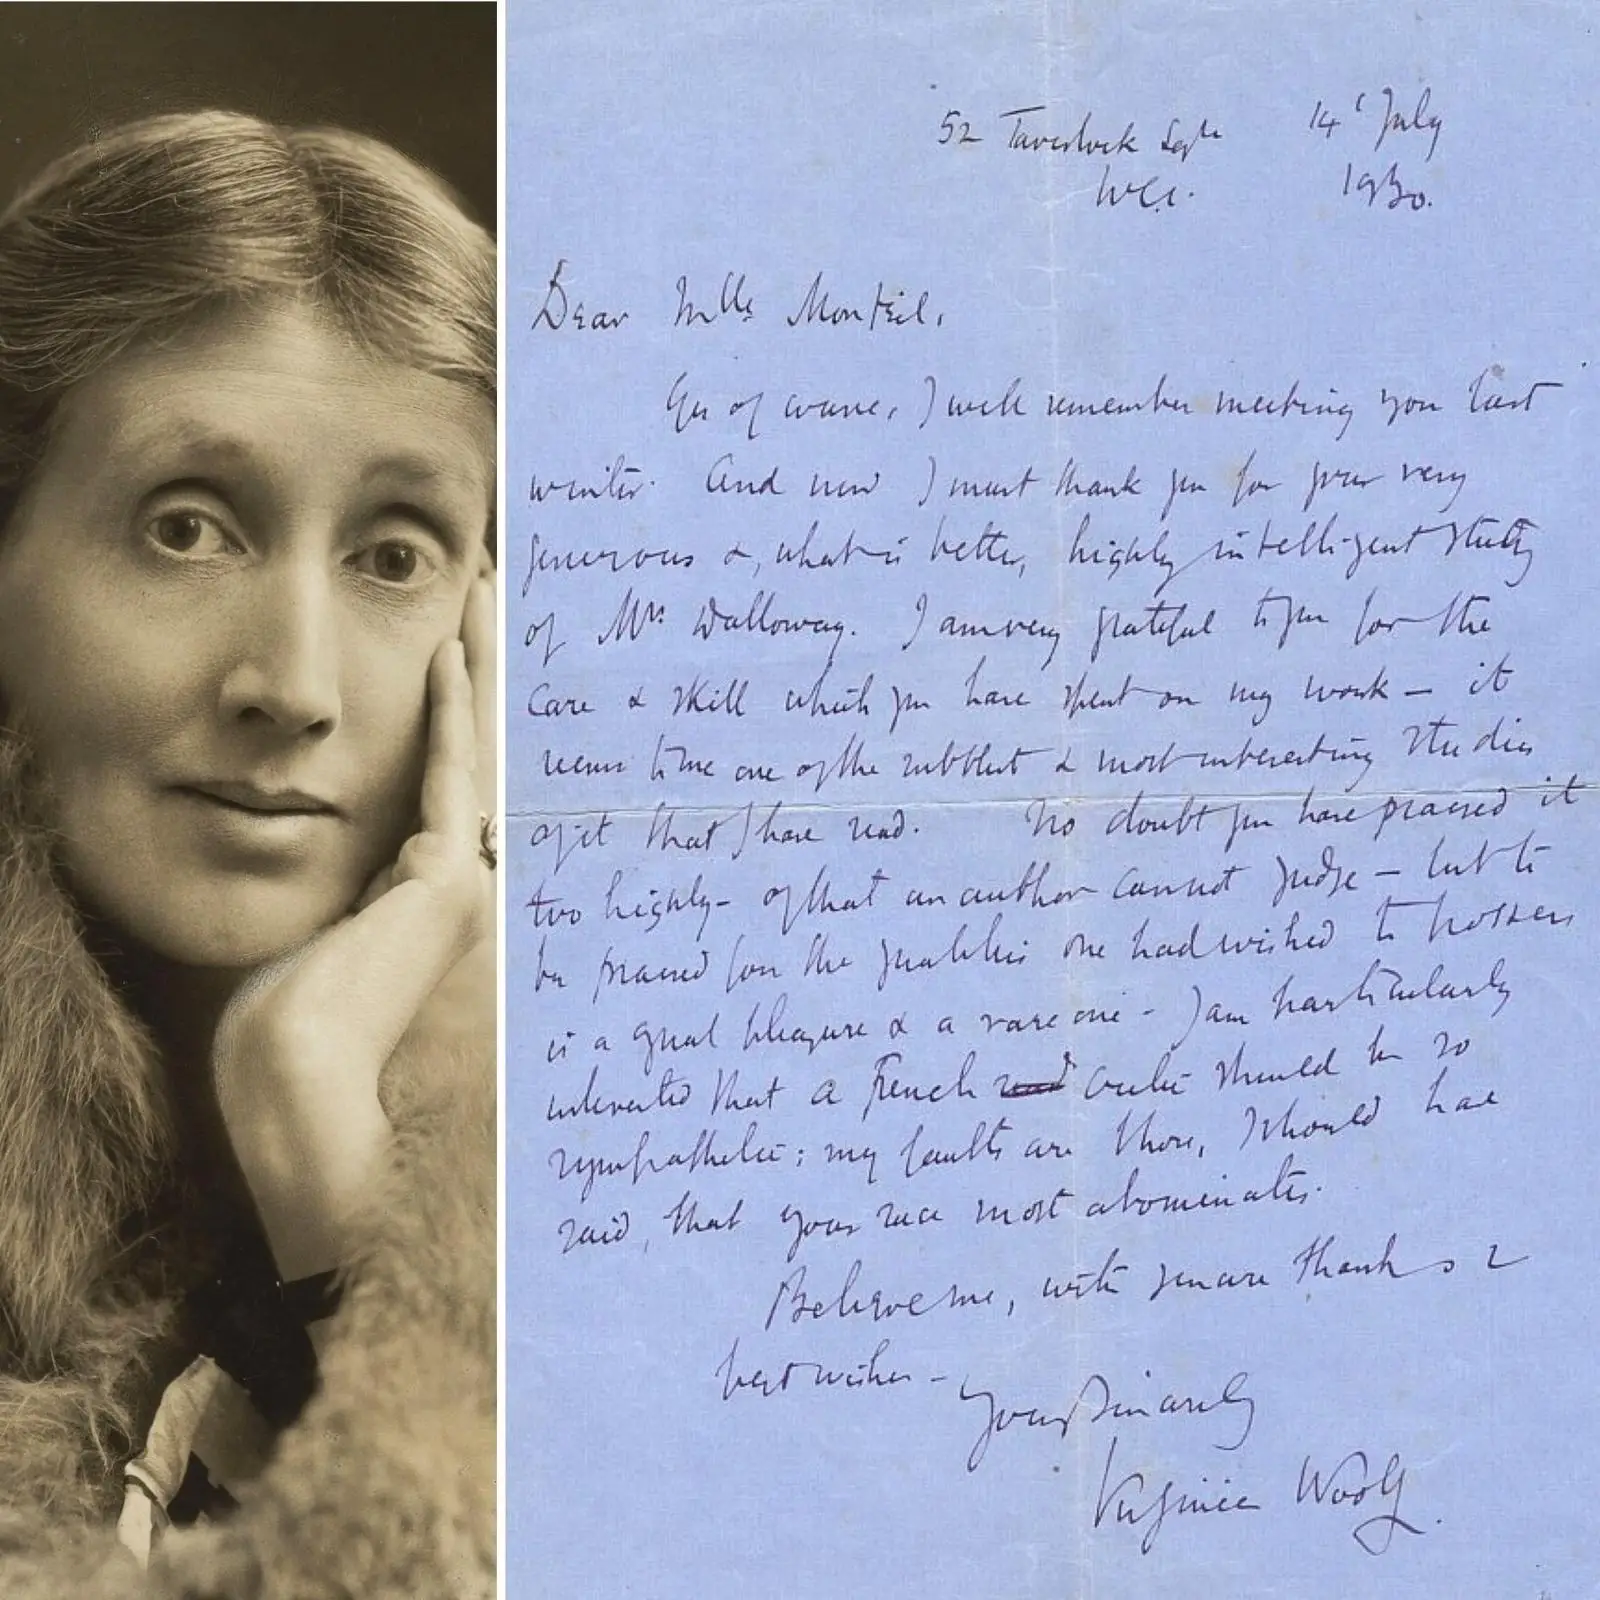 52 Tavistock Sqre 14th July
W.C.1. 1930.
Dear Mlle Monteil,
Yes of course, I well remember meeting you last
winter. And now I must thank you for your very
generous &, what is better, highly intelligent study
of Mrs Dalloway. I am very grateful to you for the
care & skill which you have spent on my work — it
seems to me one of the subtlest & most interesting studies
of it that I have read. No doubt you have praised it
too highly — of that an author cannot judge — but to
be praised for the qualities one had wished to possess
is a great pleasure & a rare one — I am particularly
interested that a French critic should be so
sympathetic; my faults are those, I should have
said, that your race most abominates.
Believe me, with sincere thanks &
best wishes —
Yours sincerely
Virginia Woolf.